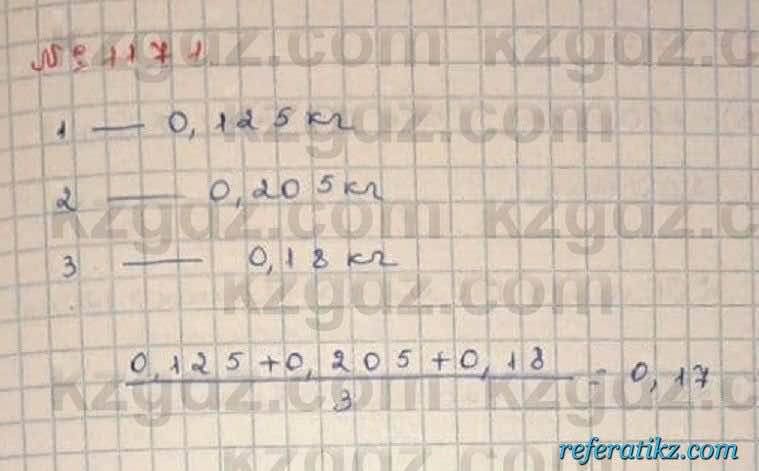 № 1171
kzgdz.com kzgdz.com
1 — 0,125 кг
kzgdz.com
2 — 0,205 кг
kzgdz.com kzgdz.com
3 — 0,18 кг
kzgdz.com
0,125 + 0,205 + 0,18
3
= 0,17
kzgdz.com kzgdz.com
kzgdz.com
referatikz.com